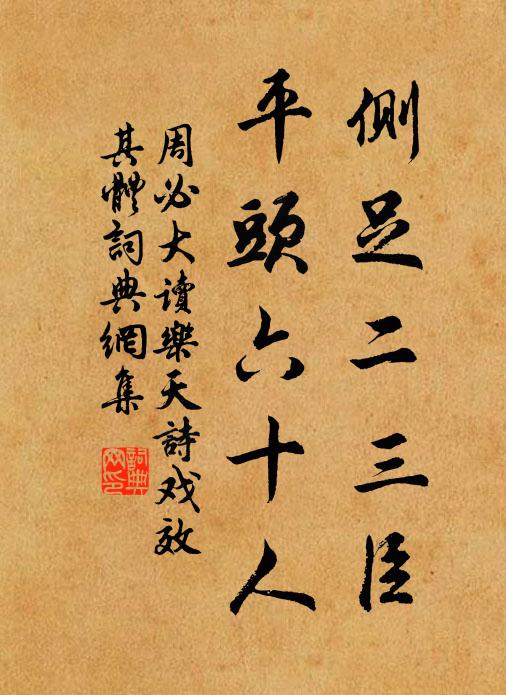 側足二三臣
平頭六十人
周必大讀樂天詩戏效
其體詞典網集
詞典网印